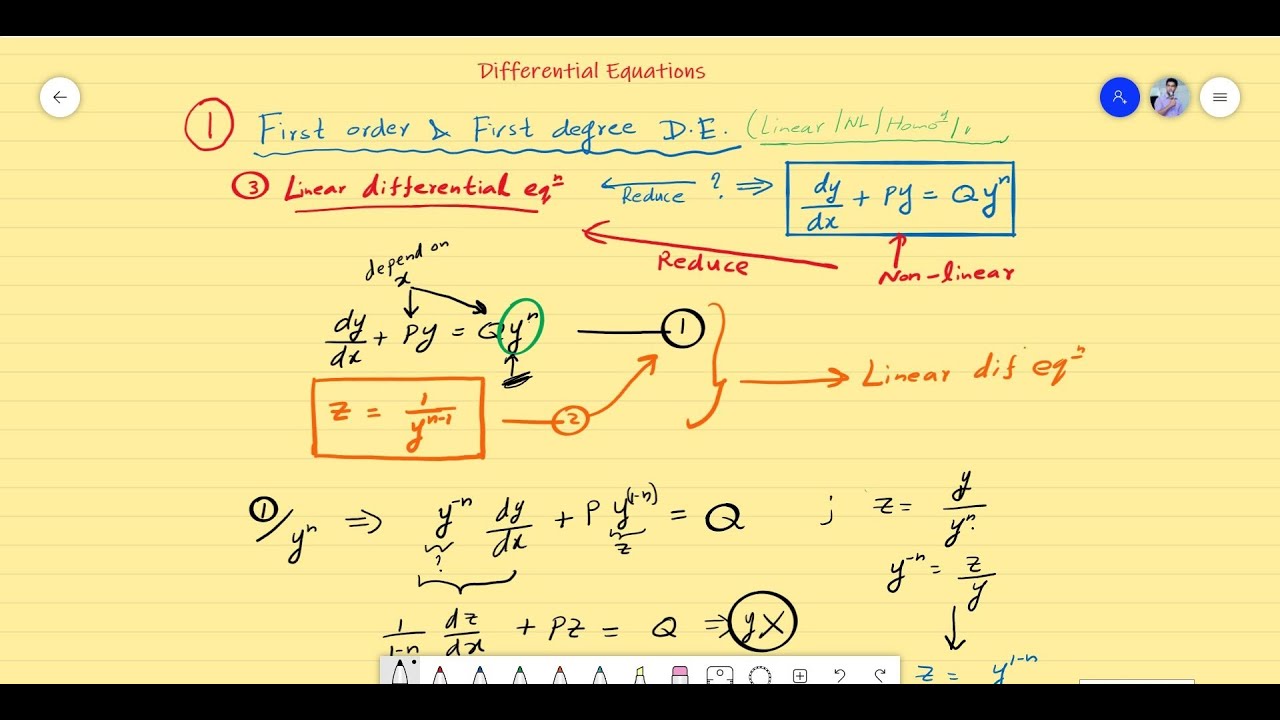 Differential Equations
① First order & First degree D.E. (Linear/NL/Homo
③ Linear differential eqⁿ ← Reduce ? ⇒ dy/dx + Py = Qyⁿ
Reduce
Non-linear
depend on
x
dy/dx + Py = Qyⁿ — ①
z = 1/yⁿ⁻¹ — ② → Linear dif eqⁿ
①/yⁿ ⇒ y⁻ⁿ dy/dx + P y⁽¹⁻ⁿ⁾ = Q ; z = y/yⁿ
? z
y⁻ⁿ = z/y
1/1-n dz/dx + Pz = Q ⇒ yX
z = y¹⁻ⁿ